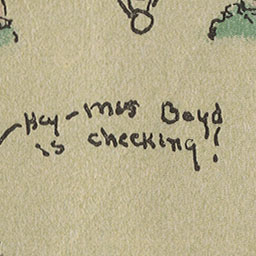 Hey - Mrs Boyd
is checking!